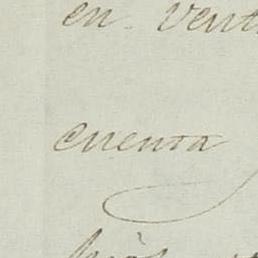 en vent
cuenta